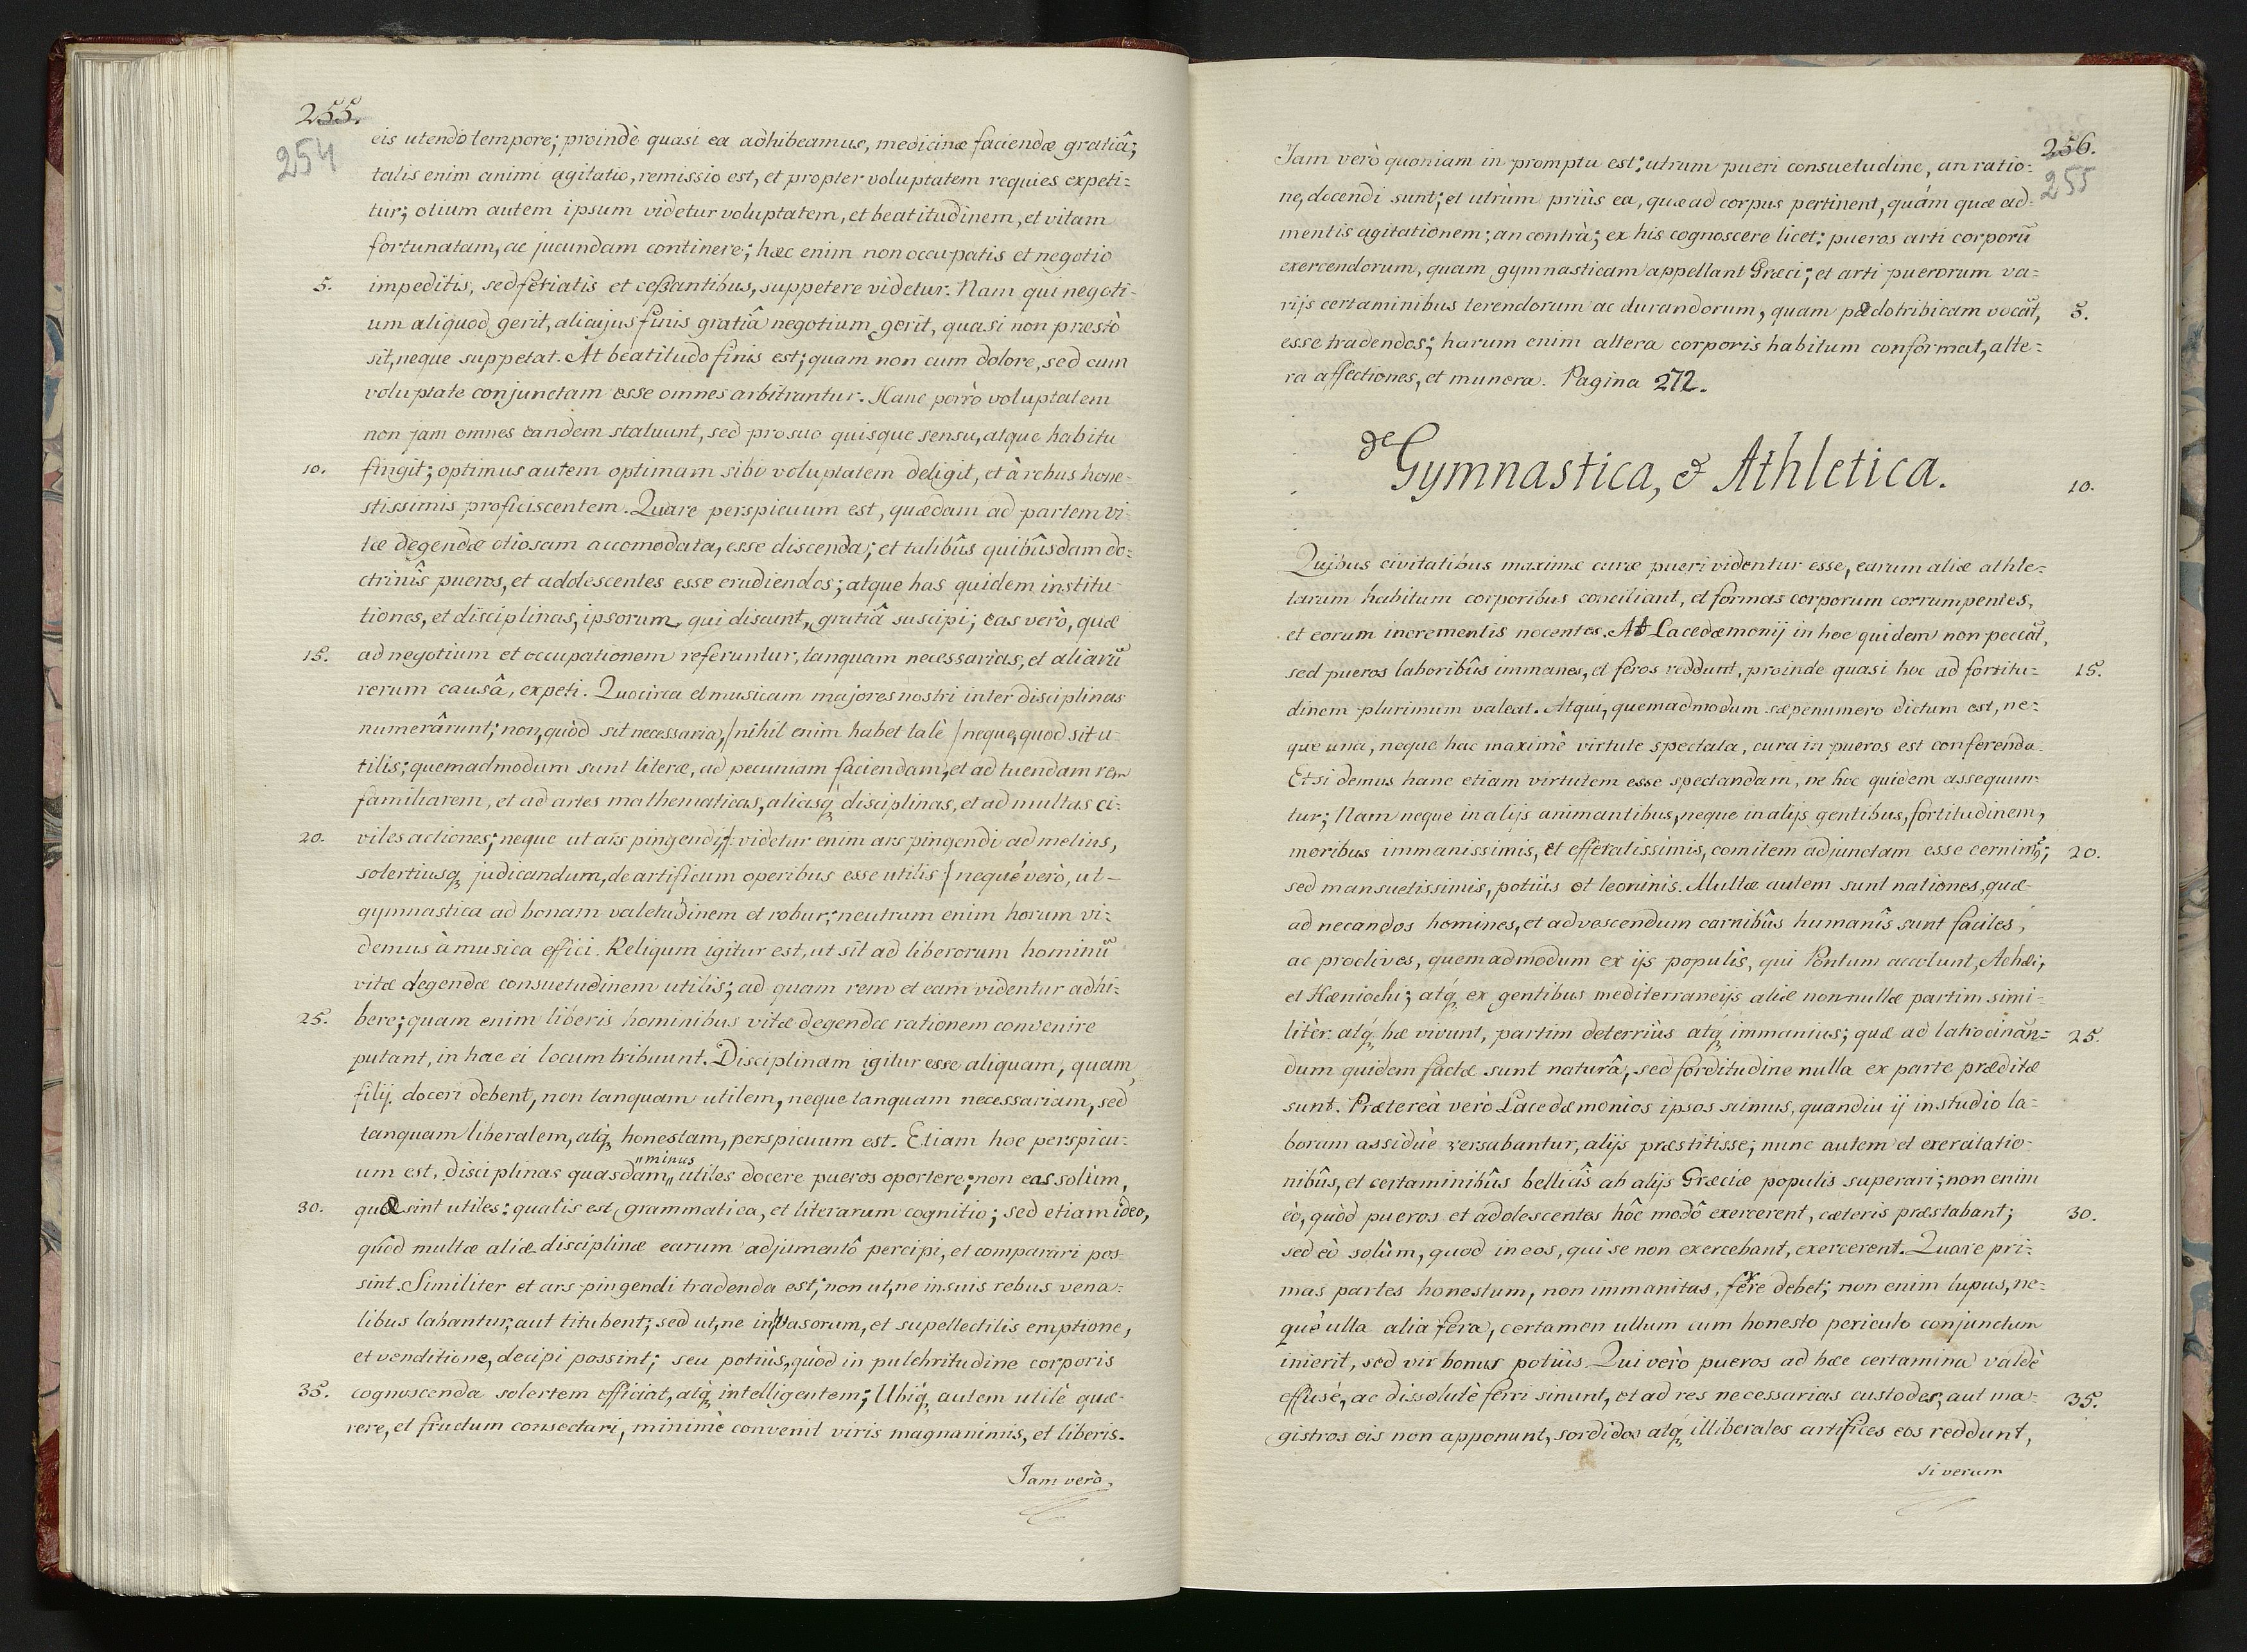 255.
254
eis utendo tempore; proindè quasi ea adhibeamus, medicinæ faciendæ gratiâ;
talis enim animi agitatio, remissio est, et propter voluptatem requies expeti=
tur; otium autem ipsum videtur voluptatem, et beatitudinem, et vitam
fortunatam, ac jucundam continere; hæc enim non occupatis et negotio
5. impeditis, sed feriatis et ceßantibus, suppetere videtur. Nam qui negoti-
um aliquod gerit, alicujus finis gratiâ negotium gerit, quasi non præstò
sit, neque suppetat. At beatitudo finis est; quam non cum dolore, sed cum
voluptate conjunctam esse omnes arbitrantur. Hanc porrò voluptatem
non jam omnes eandem statuunt, sed pro suo quisque sensu, atque habitu
10. fingit; optimus autem optimam sibi voluptatem deligit, et à rebus hone-
stissimis proficiscentem. Quare perspicuum est, quædam ad partem vi-
tæ degendæ otiosam accomodata, esse discenda; et talibûs quibûsdam do=
ctrinîs pueros, et adolescentes esse erudiendos; atque has quidem institu-
tiones, et disciplinas, ipsorum, qui discunt, gratiâ suscipi; eas verò, quæ
15. ad negotium et occupationem referuntur, tanquam necessarias, et aliarū
rerum causâ, expeti. Quocirca et musicam majores nostri inter disciplinas
numerârunt; non, quòd sit necessaria, /nihil enim habet talè / neque, quod sit u-
tilis; quemadmodum sunt literæ, ad pecuniam faciendam, et ad tuendam rem
familiarem, et ad artes mathematicas, aliasq́ disciplinas, et ad multas ci-
20. viles actiones; neque ut ars pingendi,/ videtur enim ars pingendi ad melius,
solertiusq́ judicandum, de artificum operibus esse utilis / nequè verò, ut-
gymnastica ad bonam valetudinem et robur; neutrum enim horum vi-
demus à musica effici. Reliqum igitur est, ut sit ad liberorum hominū
vitæ degendæ consuetudinem utilis; ad quam rem et eam videntur adhi-
25. bere; quam enim liberis hominibus vitæ degendæ rationem convenire
putant, in hac ei locum tribuunt. Disciplinam igitur esse aliquam, quam
filij doceri debent, non tanquam utilem, neque tanquam necessariam, sed
tanquam liberalem, atq́ honestam, perspicuum est. Etiam hoc perspicu-
„minus
um est, disciplinas quasdam„ utiles docere pueros oportere; non eas solùm,
30. quæ sint utiles: qualis est grammatica, et literarum cognitio; sed etiam ideo,
quòd multæ aliæ disciplinæ earum adjumentô percipi, et comparari pos-
sint. Similiter et ars pingendi tradenda est; non ut, ne in suis rebus vena-
libus labantur, aut titubent; sed ut, ne in vasorum, et supellectilis emptione,
et venditione, decipi possint; seu potiùs, quòd in pulchritudine corporis
35. cognoscenda solertem efficiat, atq́ intelligentem; Ubiq́ autem utilè quæ-
rere, et fructum consectari, minimè convenit viris magnanimis, et liberis.
Jam verò,
256.
255
Jam verò quoniam in promptu est: utrum pueri consuetudine, an ratio=
ne, docendi sunt; et utrùm priùs ea, quæ ad corpus pertinent, quám quæ ad
mentis agitationem; an contrà; ex his cognoscere licet: pueros arti corporū
exercendorum, quam gymnasticam appellant Græci; et arti puerorum va=
rijs certaminibus terendorum ac durandorum, quam pædotribicam vocāt, 5.
esse tradendos; harum enim altera corporis habitum conformat, alte=
ra affectiones, et munera. Pagina 272.
de Gymnastica, & Athletica. 10.
Quibus civitatibus maximæ curæ pueri videntur esse, earum aliæ athle-
tarum habitum corporibus conciliant, et formas corporum corrumpentes,
et eorum incrementis nocentes. At Lacedæmonij in hoc quidem non peccāt,
sed pueros laboribûs immanes, et feros reddunt, proinde quasi hoc ad fortitu- 15.
dinem plurimùm valeat. Atqui, quemadmodum sæpenumero dictum est, ne-
que una, neque hac maximè virtute spectata, cura in pueros est conferenda.
Etsi demus hanc etiam virtutem esse spectandam, ne hoc quidem assequun-
tur; Nam neque in alijs animantibus, neque in alijs gentibus, fortitudinem,
moribus immanissimis, et efferatissimis, comitem adjunctam esse cernimꝰ; 20.
sed mansuetissimis, potiùs et leoninis. Multæ autem sunt nationes, quæ
ad necandos homines, et ad vescendum carnibûs humanîs sunt faciles,
ac proclives, quemadmodum ex ijs populis, qui Pontum accolunt, Achæi,
et Hæniochi; atq́ ex gentibus mediterraneijs aliæ nonnullæ partim simi-
litèr atq́ hæ vivunt, partim deterriùs atq́ immanius; quæ ad latrocinān= 25.
dum quidem factæ sunt naturâ, sed forditudine nulla ex parte præditæ
sunt. Prætereà verò Lacedæmonios ipsos scimus, quandiu ij in studio la-
borum assiduè versabantur, alijs præstitisse; nunc autem et exercitatio-
nibûs, et certaminibûs bellicîs ab alijs Græciæ populis superari; non enim
èo, quòd pueros et adolescentes hôc modô exercerent, cæteris præstabant; 30.
sed èò solùm, quod in eos, qui se non exercebant, exercerent. Quare pri-
mas partes honestum, non immanitas, ferre debet; non enim lupus, ne-
què ulla alia fera, certamen ullum cum honesto periculo conjunctum
inierit, sed vir bonus potiùs. Qui verò pueros ad hæc certamina valdè
effusè, ac dissolutè ferri sinunt, et ad res necessarias custodes, aut ma- 35.
gistros eis non apponunt, sordidos atq́ illiberales artifices eos reddunt,
si verum